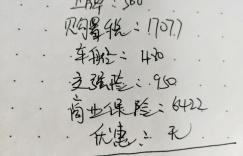 上牌：500
购置税：17077
车船税：480
交强险：950
商业保险：6422
优惠：无